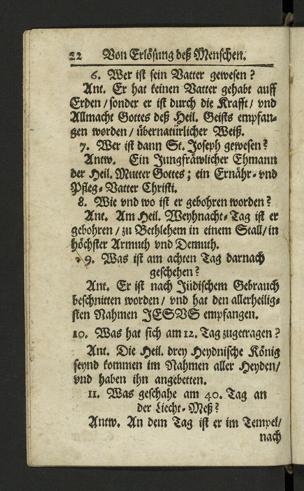 22 Von Erlösung deß Menschen.
6. Wer ist sein Vatter gewesen?
Ant. Er hat keinen Vatter gehabt auff
Erden/ sonder er ist durch die Krafft/ vnd
Allmacht Gottes deß Heil. Geists empfan-
gen worden/ übernatürlicher Weiß.
7. Wer ist dann St. Joseph gewesen?
Antw. Ein Jungfräwlicher Ehmann
der Heil. Mutter Gottes; ein Ernähr- vnd
Pfleg-Vatter Christi.
8. Wie vnd wo ist er gebohren worden?
Ant. Am Heil. Weyhnacht-Tag ist er
gebohren/ zu Bethlehem in einem Stall/ in
höchster Armuth vnd Demuth.
9. Was ist am achten Tag darnach
geschehen?
Ant. Er ist nach Jüdischem Gebrauch
beschnitten worden/ vnd hat den allerheilig-
sten Nahmen JESUS empfangen.
10. Was hat sich am 12. Tag zugetragen?
Ant. Die Heil. drey Heydnische König
seynd kommen im Nahmen aller Heyden/
vnd haben ihn angebetten.
11. Was geschahe am 40. Tag an
der Liecht-Meß?
Antw. An dem Tag ist er im Tempel/
nach